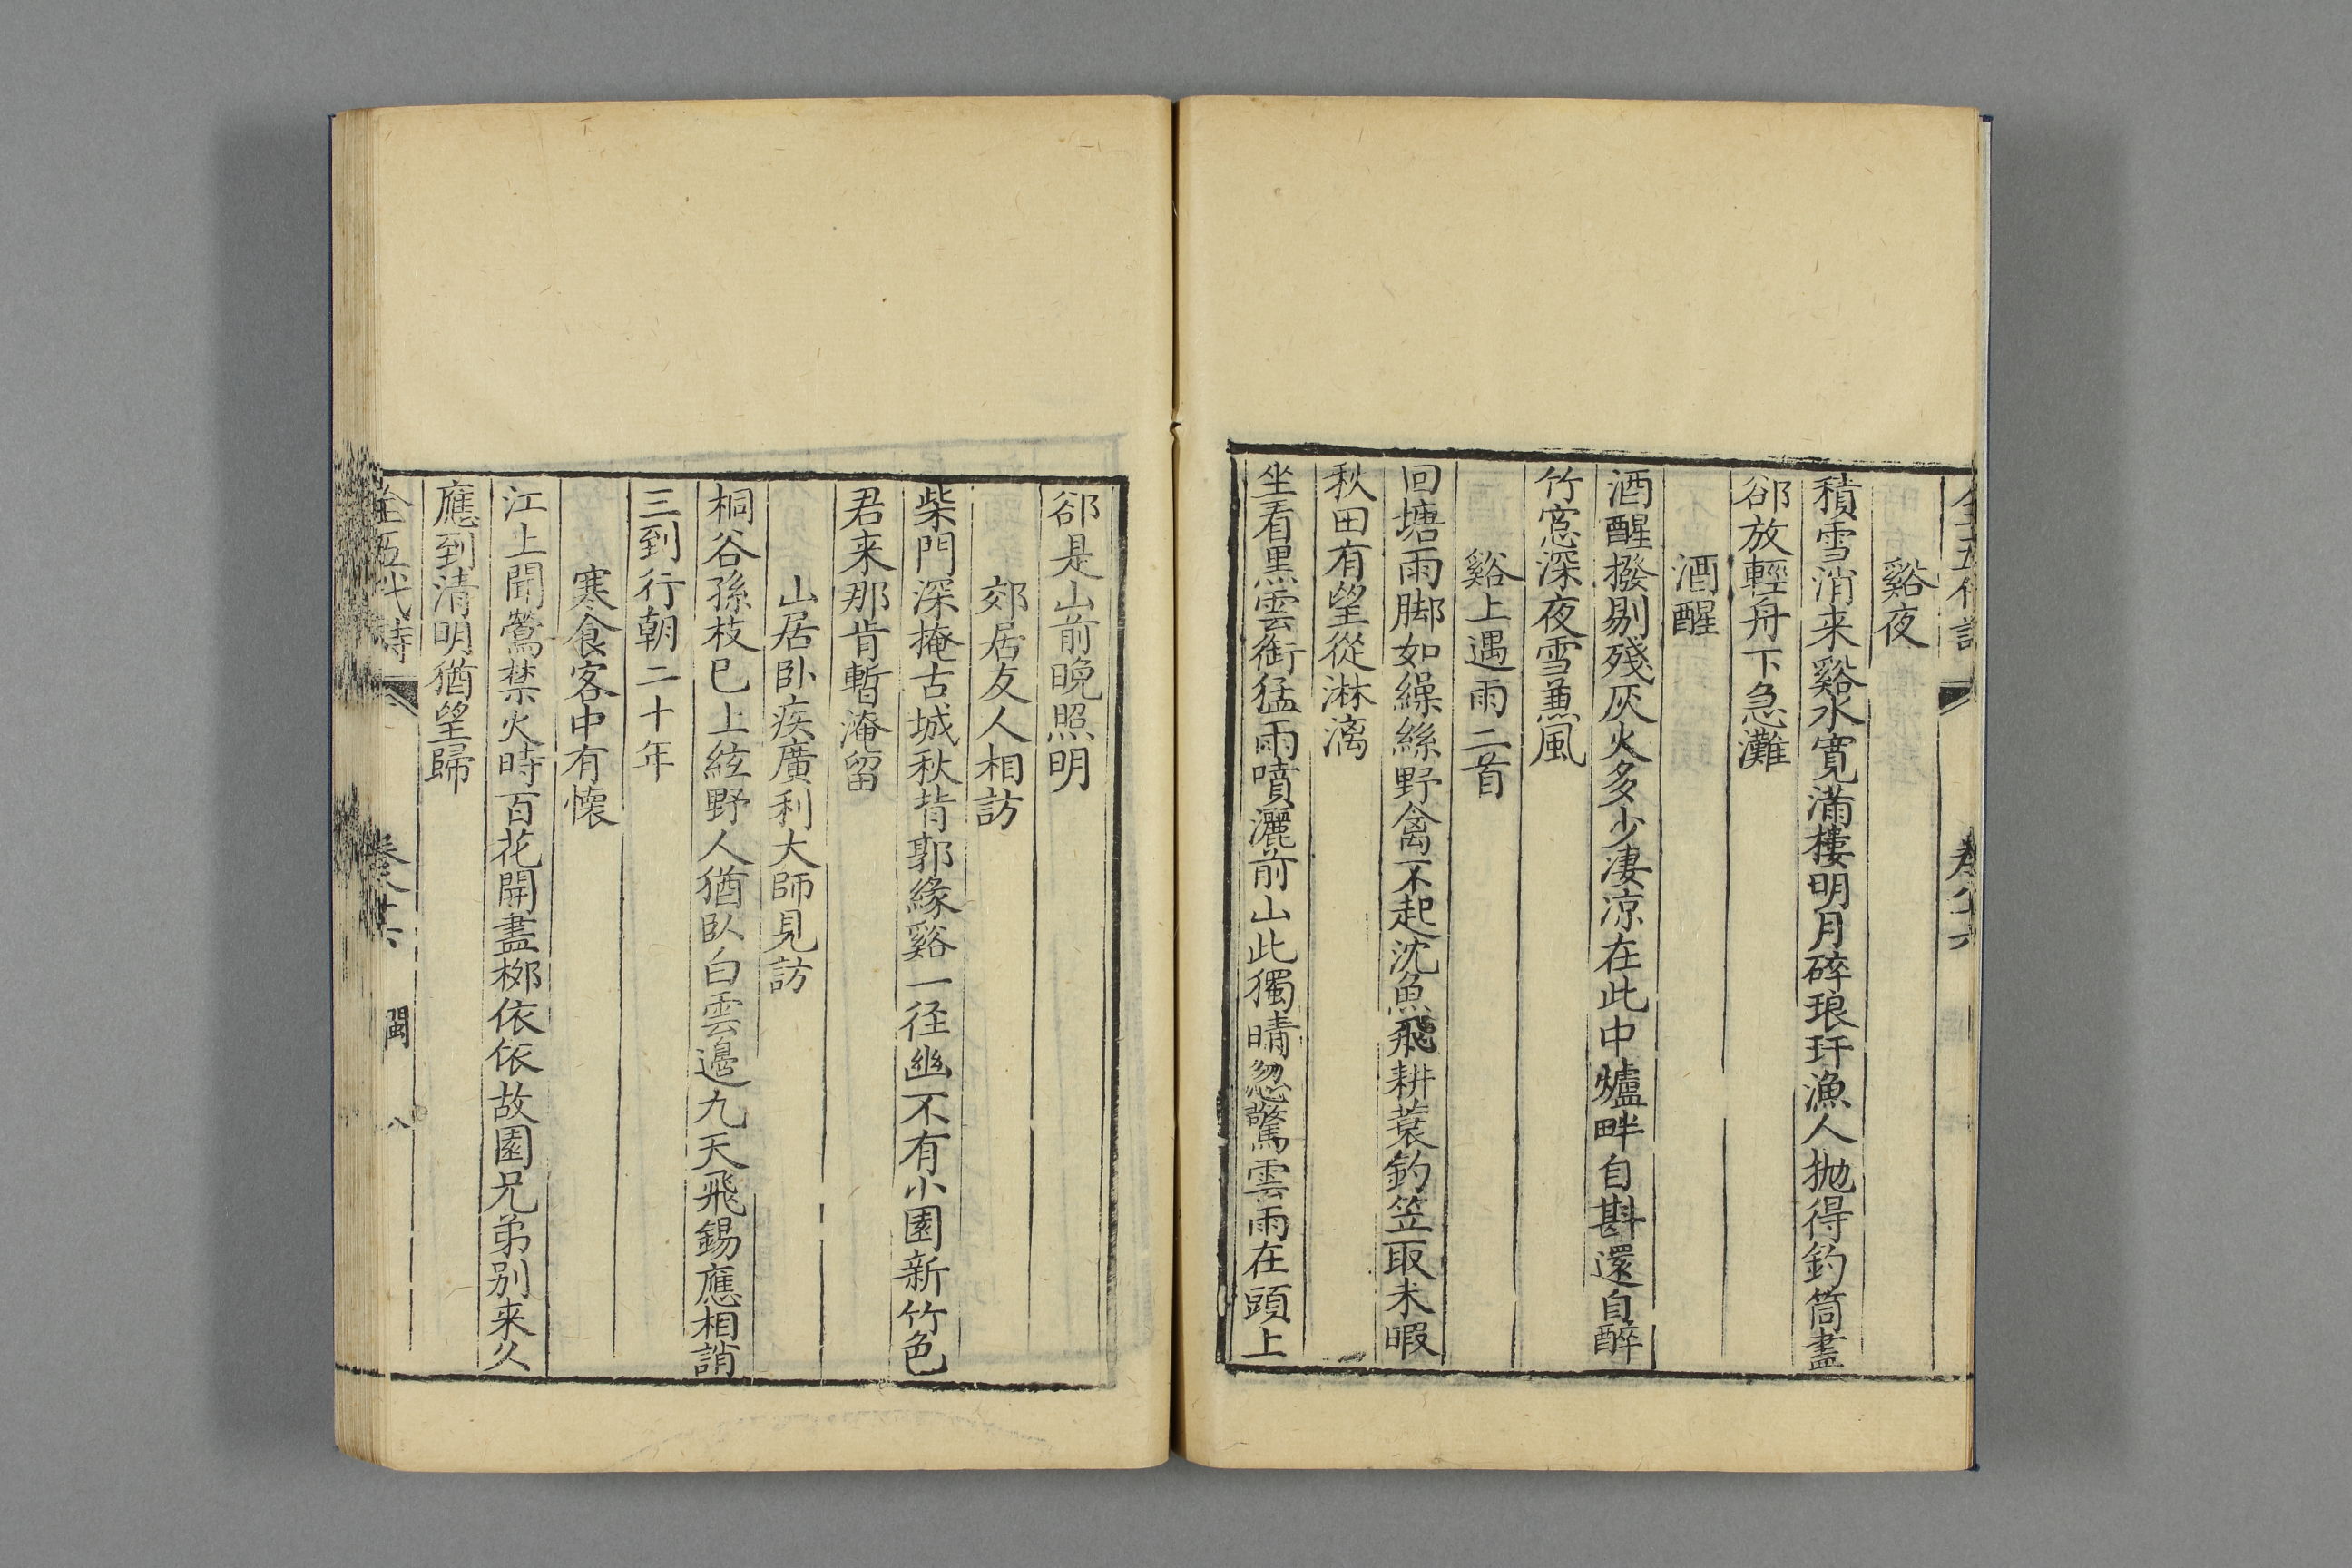 谿夜
積雪消来谿水寛滿樓明月碎琅玕漁人抛得釣筒盡
郤放輕舟下急灘
酒醒
酒醒撥剔殘灰火多少凄凉在此中爐畔自斟還自醉
竹窓深夜雪蒹風
谿上遇雨二首
回塘雨脚如繰絲野禽不起沈魚飛耕蓑釣笠取未暇
秋田有望從淋漓
坐看黒雲銜猛雨噴灑前山此獨晴忽驚雲雨在頭上
郤是山前晚照明
郊居友人相訪
柴門深掩古城秋背郭緣谿一径幽不有小園新竹色
君来那肯暫淹留
山居卧疾廣利大師見訪
桐谷孫枝已上絃野人猶臥白雲邊九天飛錫應相誚
三到行朝二十年
寒食客中有懷
江上聞鶯禁火時百花開盡栁依依故園兄弟别来久
應到清明猶望歸
全五代詩 卷 閩 八